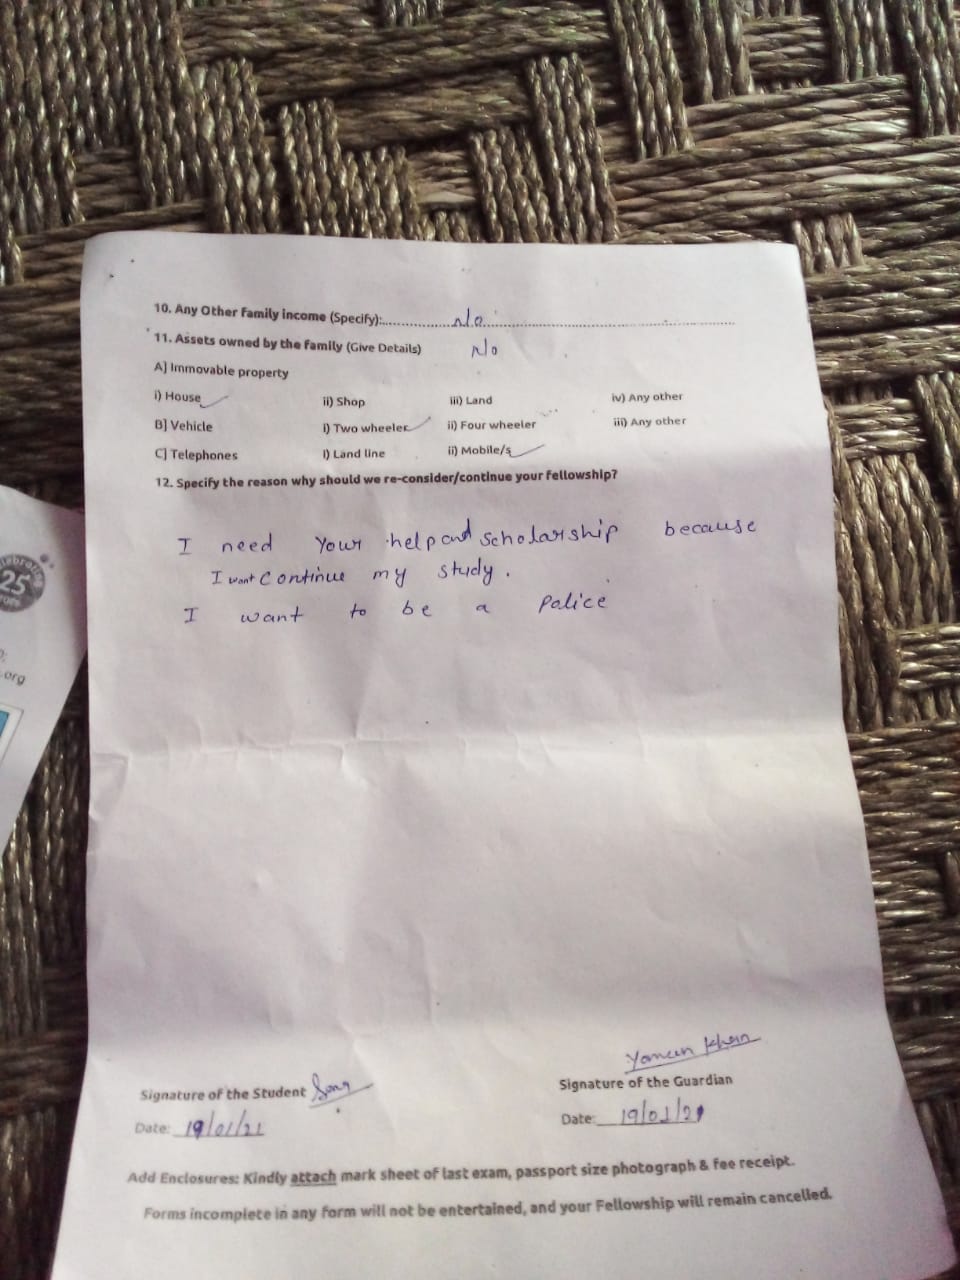 10. Any Other family income (Specify):........ No ........
11. Assets owned by the family (Give Details) No
A] Immovable property
i) House ii) Shop iii) Land iv) Any other
B] Vehicle i) Two wheeler ii) Four wheeler iii) Any other
C] Telephones i) Land line ii) Mobile/s
12. Specify the reason why should we re-consider/continue your fellowship?
I need your help and scholarship because
I want continue my study.
I want to be a police
25
.org
Signature of the Student
Yameen Khan
Signature of the Guardian
Date: 19/01/21
Date: 19/01/21
Add Enclosures: Kindly attach mark sheet of last exam, passport size photograph & fee receipt.
Forms incomplete in any form will not be entertained, and your Fellowship will remain cancelled.